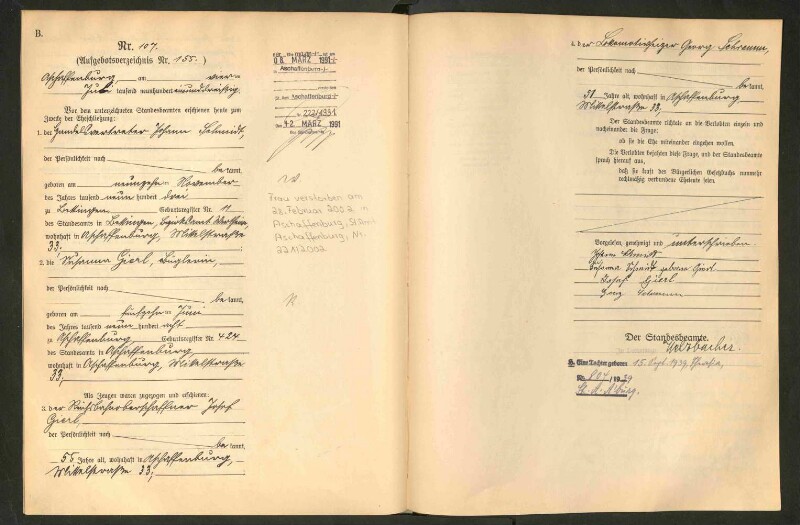 B.
Nr. 107.
(Aufgebotsverzeichnis Nr. 155.)
Aschaffenburg am vier-
Juli tausend neunhundert einunddreißig.
Vor dem unterzeichneten Standesbeamten erschienen heute zum
Zweck der Eheschließung:
1. der Handelsvertreter Johann Schmidt,
der Persönlichkeit nach
be kannt,
geboren am neunzehn November
des Jahres tausend neun hundert drei
zu Geburtsregister Nr. 11
des Standesamts in Bezirksamt
wohnhaft in Aschaffenburg, Mittelstraße
33;
2. die Susanna Gierl, Büglerin,
der Persönlichkeit nach
be kannt,
geboren am Juni
des Jahres tausend neun hundert acht
zu Aschaffenburg Geburtsregister Nr. 424
des Standesamts in Aschaffenburg
wohnhaft in Aschaffenburg, Mittelstraße
33;
Als Zeugen waren zugezogen und erschienen:
3. der Reichsbahnoberschaffner Josef
Gierl,
der Persönlichkeit nach
be kannt,
55 Jahre alt, wohnhaft in Aschaffenburg,
Mittelstraße 33;
MÄRZ 1991
Aschaffenburg
Aschaffenburg
222/1991
MÄRZ 1991
Frau verstorben am
23. Februar 2002 in
Aschaffenburg, St.Amt
Aschaffenburg, Nr.
4. der Lokomotivheizer Georg
der Persönlichkeit nach
be kannt,
51 Jahre alt, wohnhaft in Aschaffenburg
Mittelstraße 33;
Der Standesbeamte richtete an die Verlobten einzeln und
nacheinander die Frage:
ob sie die Ehe miteinander eingehen wollen.
Die Verlobten bejahten diese Frage, und der Standesbeamte
sprach hierauf aus,
daß sie kraft des Bürgerlichen Gesetzbuchs nunmehr
rechtmäßig verbundene Eheleute seien.
Vorgelesen, genehmigt und unterschrieben
Johann Schmidt
Susanna Schmidt geborene Gierl
Josef Gierl
Georg
Der Standesbeamte.
Eine Tochter geboren 15. Sept. 1939
Nr. 807/1939